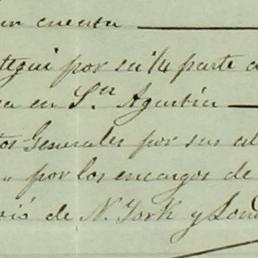 en cuenta
tegui por su 1/4 parte d
sa en Sn Agustin
tos Generales por sus al
" por los encargos de
rió de N. York y Lond